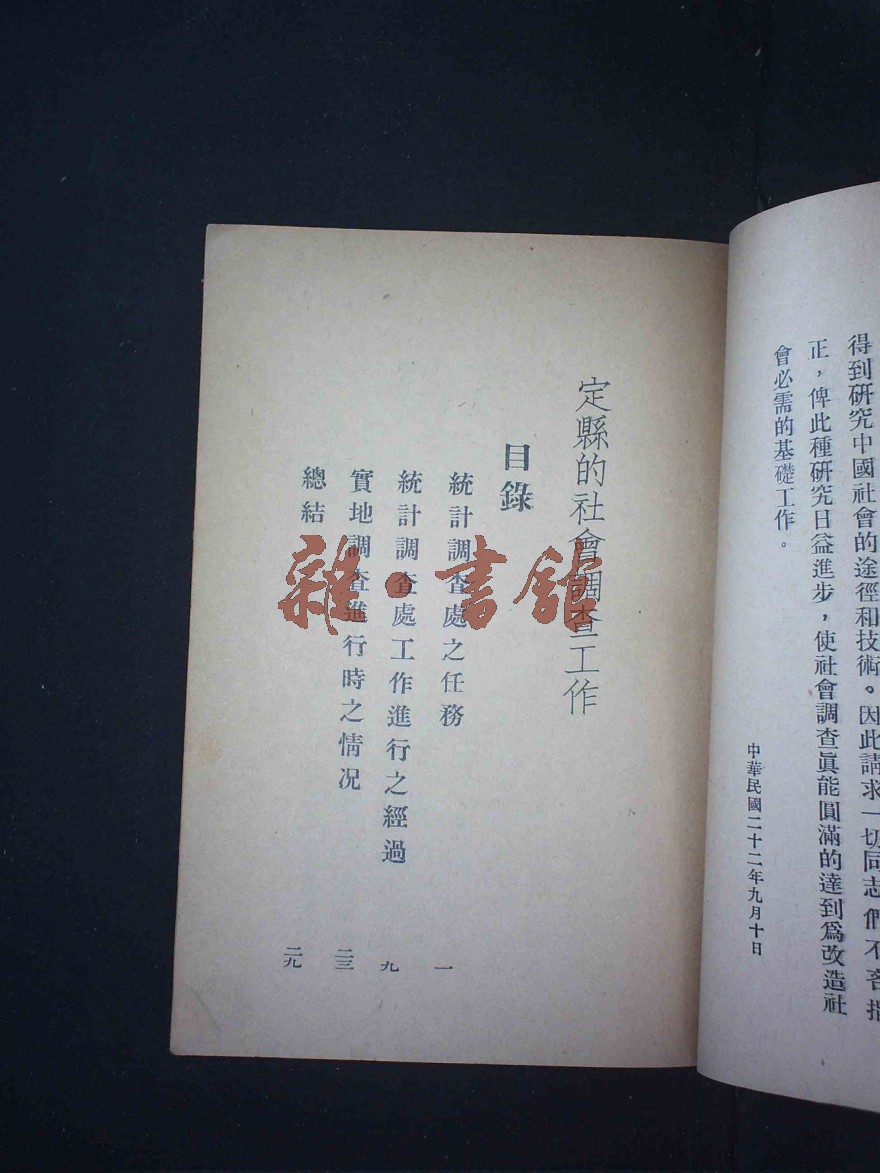 得到研究中國社會的途徑和技術。因此請求一切同志們不吝指
正，俾此種研究日益進步，使社會調查眞能圓滿的達到爲改造社
會必需的基礎工作。
中華民國二十二年九月十日
定縣的社會調查工作
目錄
統計調查處之任務 一
統計調查處工作進行之經過 九
實地調查進行時之情况 二三
總結 二九
雜·書館